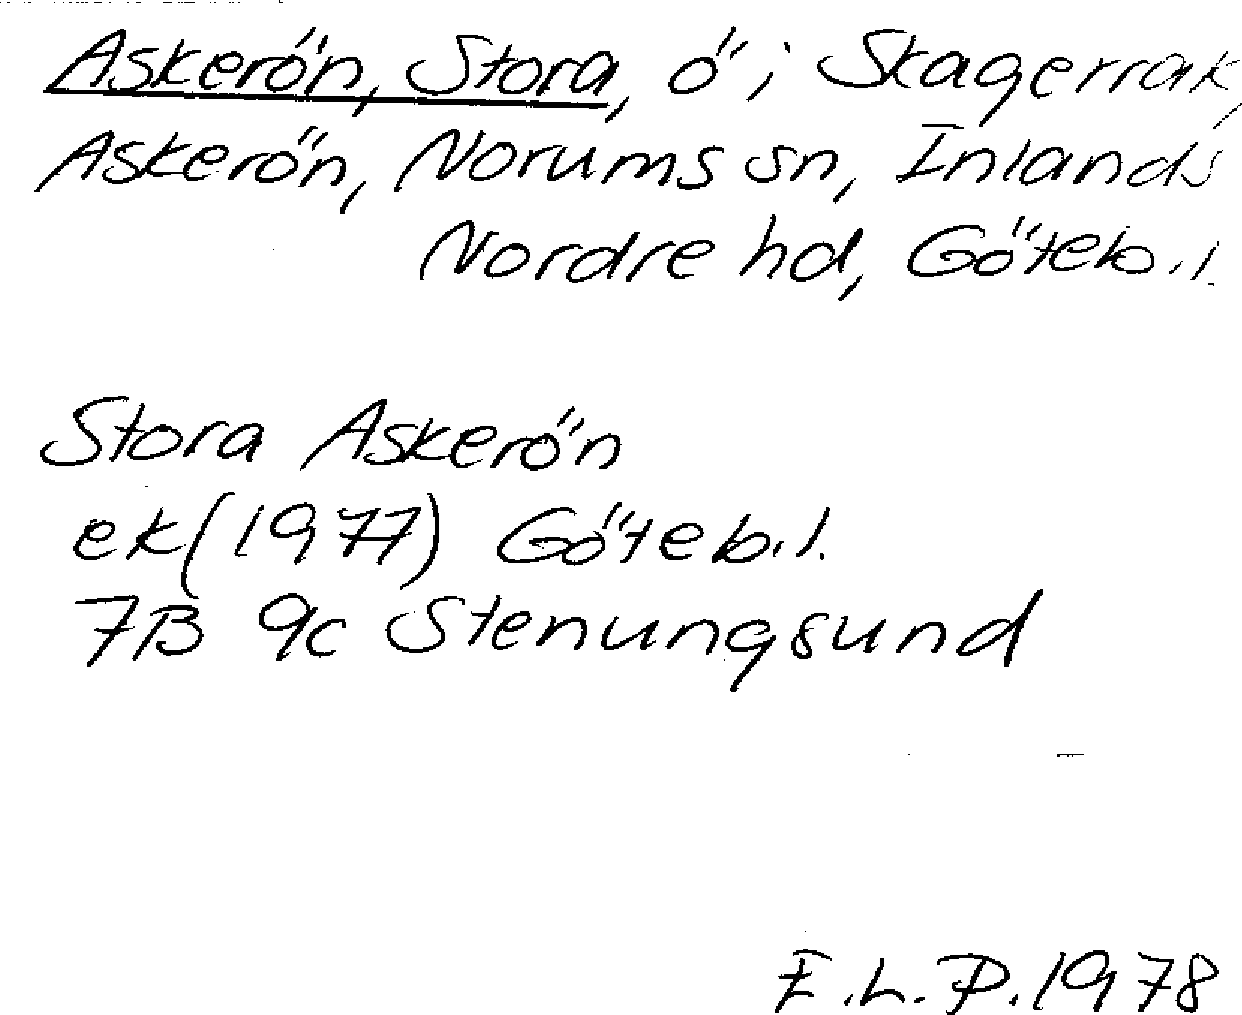 Askerön, Stora, ö i Skagerrak,
Askerön, Norums sn, Inlands
Nordre hd, Göteb.l.
Stora Askerön
ek(1977) Göteb.l.
7B 9c Stenungsund
E.L.P. 1978